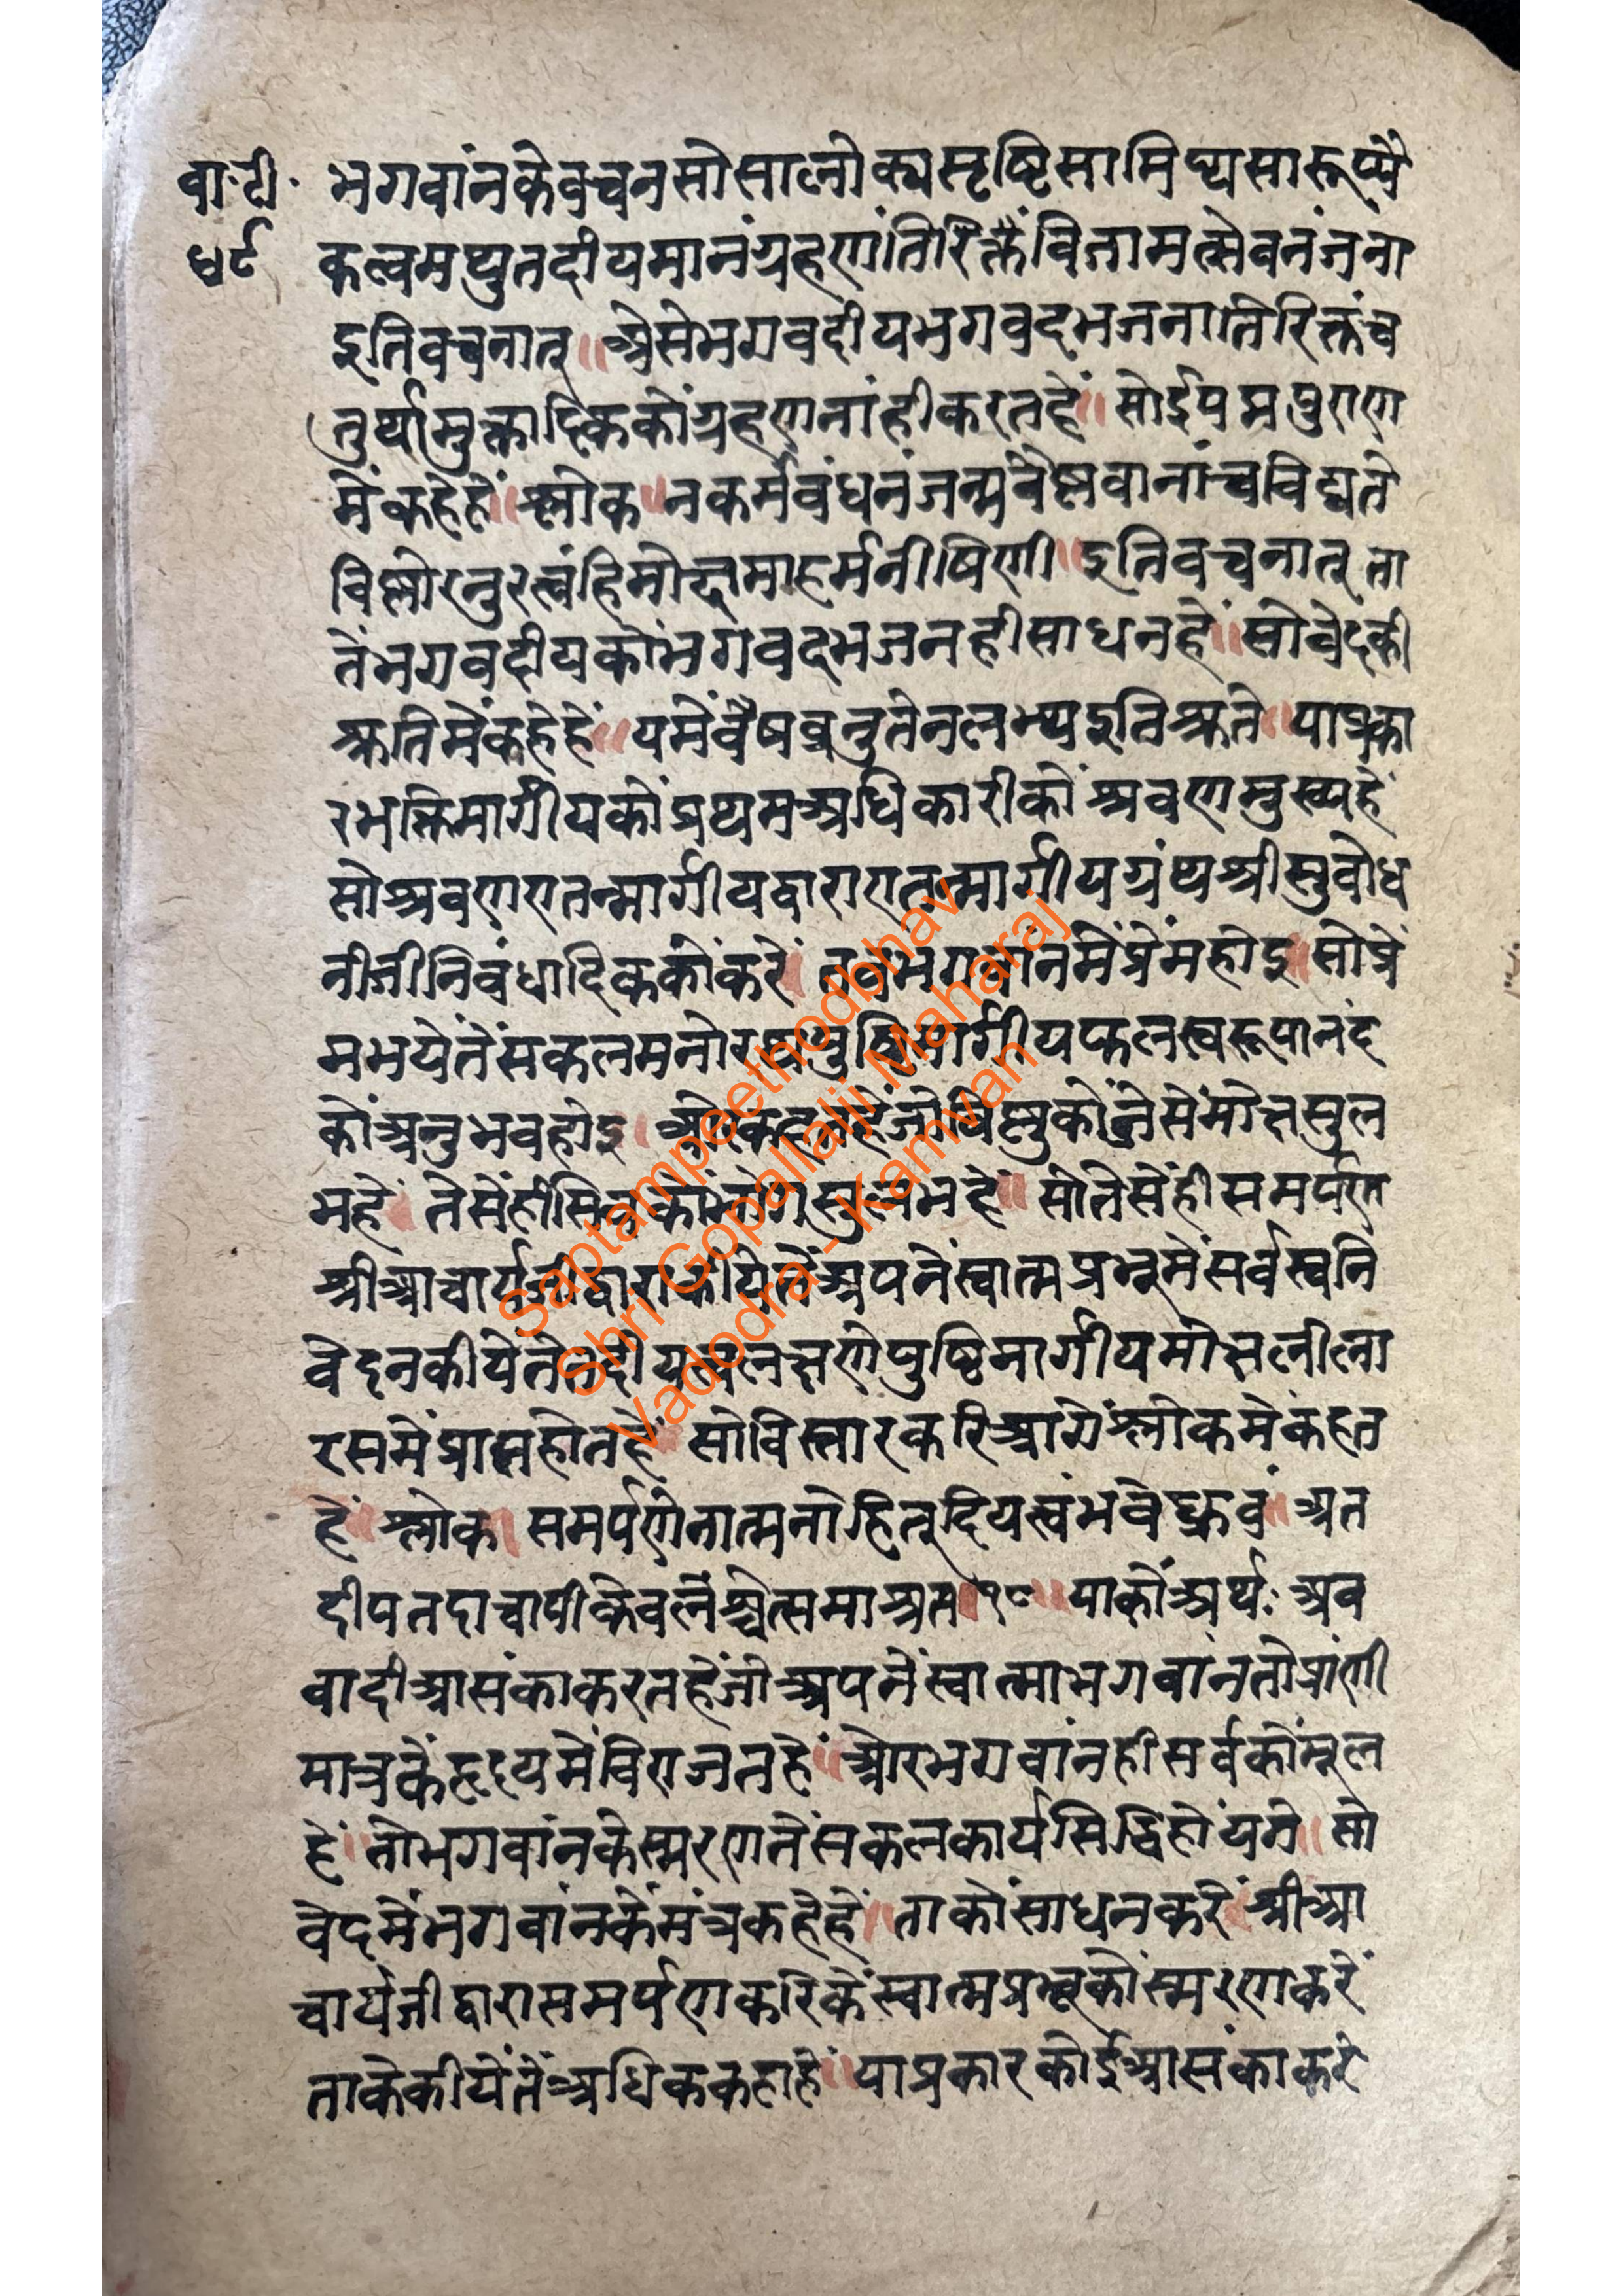 वा॰टी॰
४९
भगवांनकेवचनसोसालोक्यसृष्टिसामिप्यसारूप्यै
कत्वमप्युतदीयमानंग्रहणंतिरिक्तैंविनामत्सेवनंजना
इतिवचनात् ॥ ऐसेभगवदीयभगवदभजनातिरिक्तंच
तुर्थामुक्तादिककोंग्रहणनांहीकरतहें ॥ सोईपद्मपुराण
मेंकहेहें ॥ श्लोक ॥ नकर्मबंधनंजन्मवैष्णवानांचविद्यते
विष्णोरनुरत्वंहिमोक्षमाहर्मनीषिणी ॥ इतिवचनात् ता
तेंभगवदीयकोंभगवदभजनहीसाधनहें ॥ सोवेदकी
श्रुतिमेंकहेहें ॥ यमेंवैषवृनुतेनलभ्यइतिश्रुते ॥ याप्रका
रभक्तिमार्गीयकोंप्रथमअधिकारीकों श्रवणमुख्यहें
सोश्रवणएतन्मार्गीयद्वाराएतन्मार्गीयग्रंथश्रीसुबोध
नीजीनिबंधादिककोंकरें ॥ तबभगवांनमेंप्रेंमहोइ ॥ सोप्रें
मभयेतेंसकलमनोरथपुष्टिमार्गीयफलस्वरूपानंद
कोंअनुभवहोइ ॥ ओरकहतहेंजोविष्णुकोंजेसेंमोक्षसुल
भहें ॥ तेसेंहीसिवकोंभोगसुलभहें ॥ सोतेसेंहीसमर्पण
श्रीआचार्यजीद्वाराकीयेतेंअपनेंस्वात्मप्रभूमेंसर्वस्वनि
वेदनकीयेंतेतदीयत्वलक्षणेपुष्टिमार्गीयमोक्षलीला
रसमेंप्राप्तहोतहें ॥ सोविस्तारकरिआगेंश्लोकमेंकहत
हें ॥ श्लोक ॥ समर्पणेनात्मनोहितदियत्वंभवेध्रुवं ॥ अत
दीपतदाचापीकेवलंश्चेत्समाश्रत ॥ १८ ॥ याकोंअर्थः अब
वादीआसंकाकरतहेंजोअपनेंस्वात्माभगवांनतोप्रांणी
मात्रकेंहृदयमेंविराजतहें ॥ ओरभगवांनहीसर्वकोंमूल
हें ॥ तोभगवांनकेस्मरणतेंसकलकार्यसिद्धिहोंयगे ॥ सो
वेदमेंभगवांनकेंमंत्रकहेहें ॥ ताकोंसाधनकरें ॥ श्रीआ
चार्यजीद्वारासमर्पणकरिकेंस्वात्मप्रभूकोंस्मरणकरें
ताकेकीयेंतेंअधिककहाहें ॥ याप्रकारकोईआसंकाकरे
Saptampeethodbhav
Shri Gopallalji Maharaj
Vadodra - Kamvan